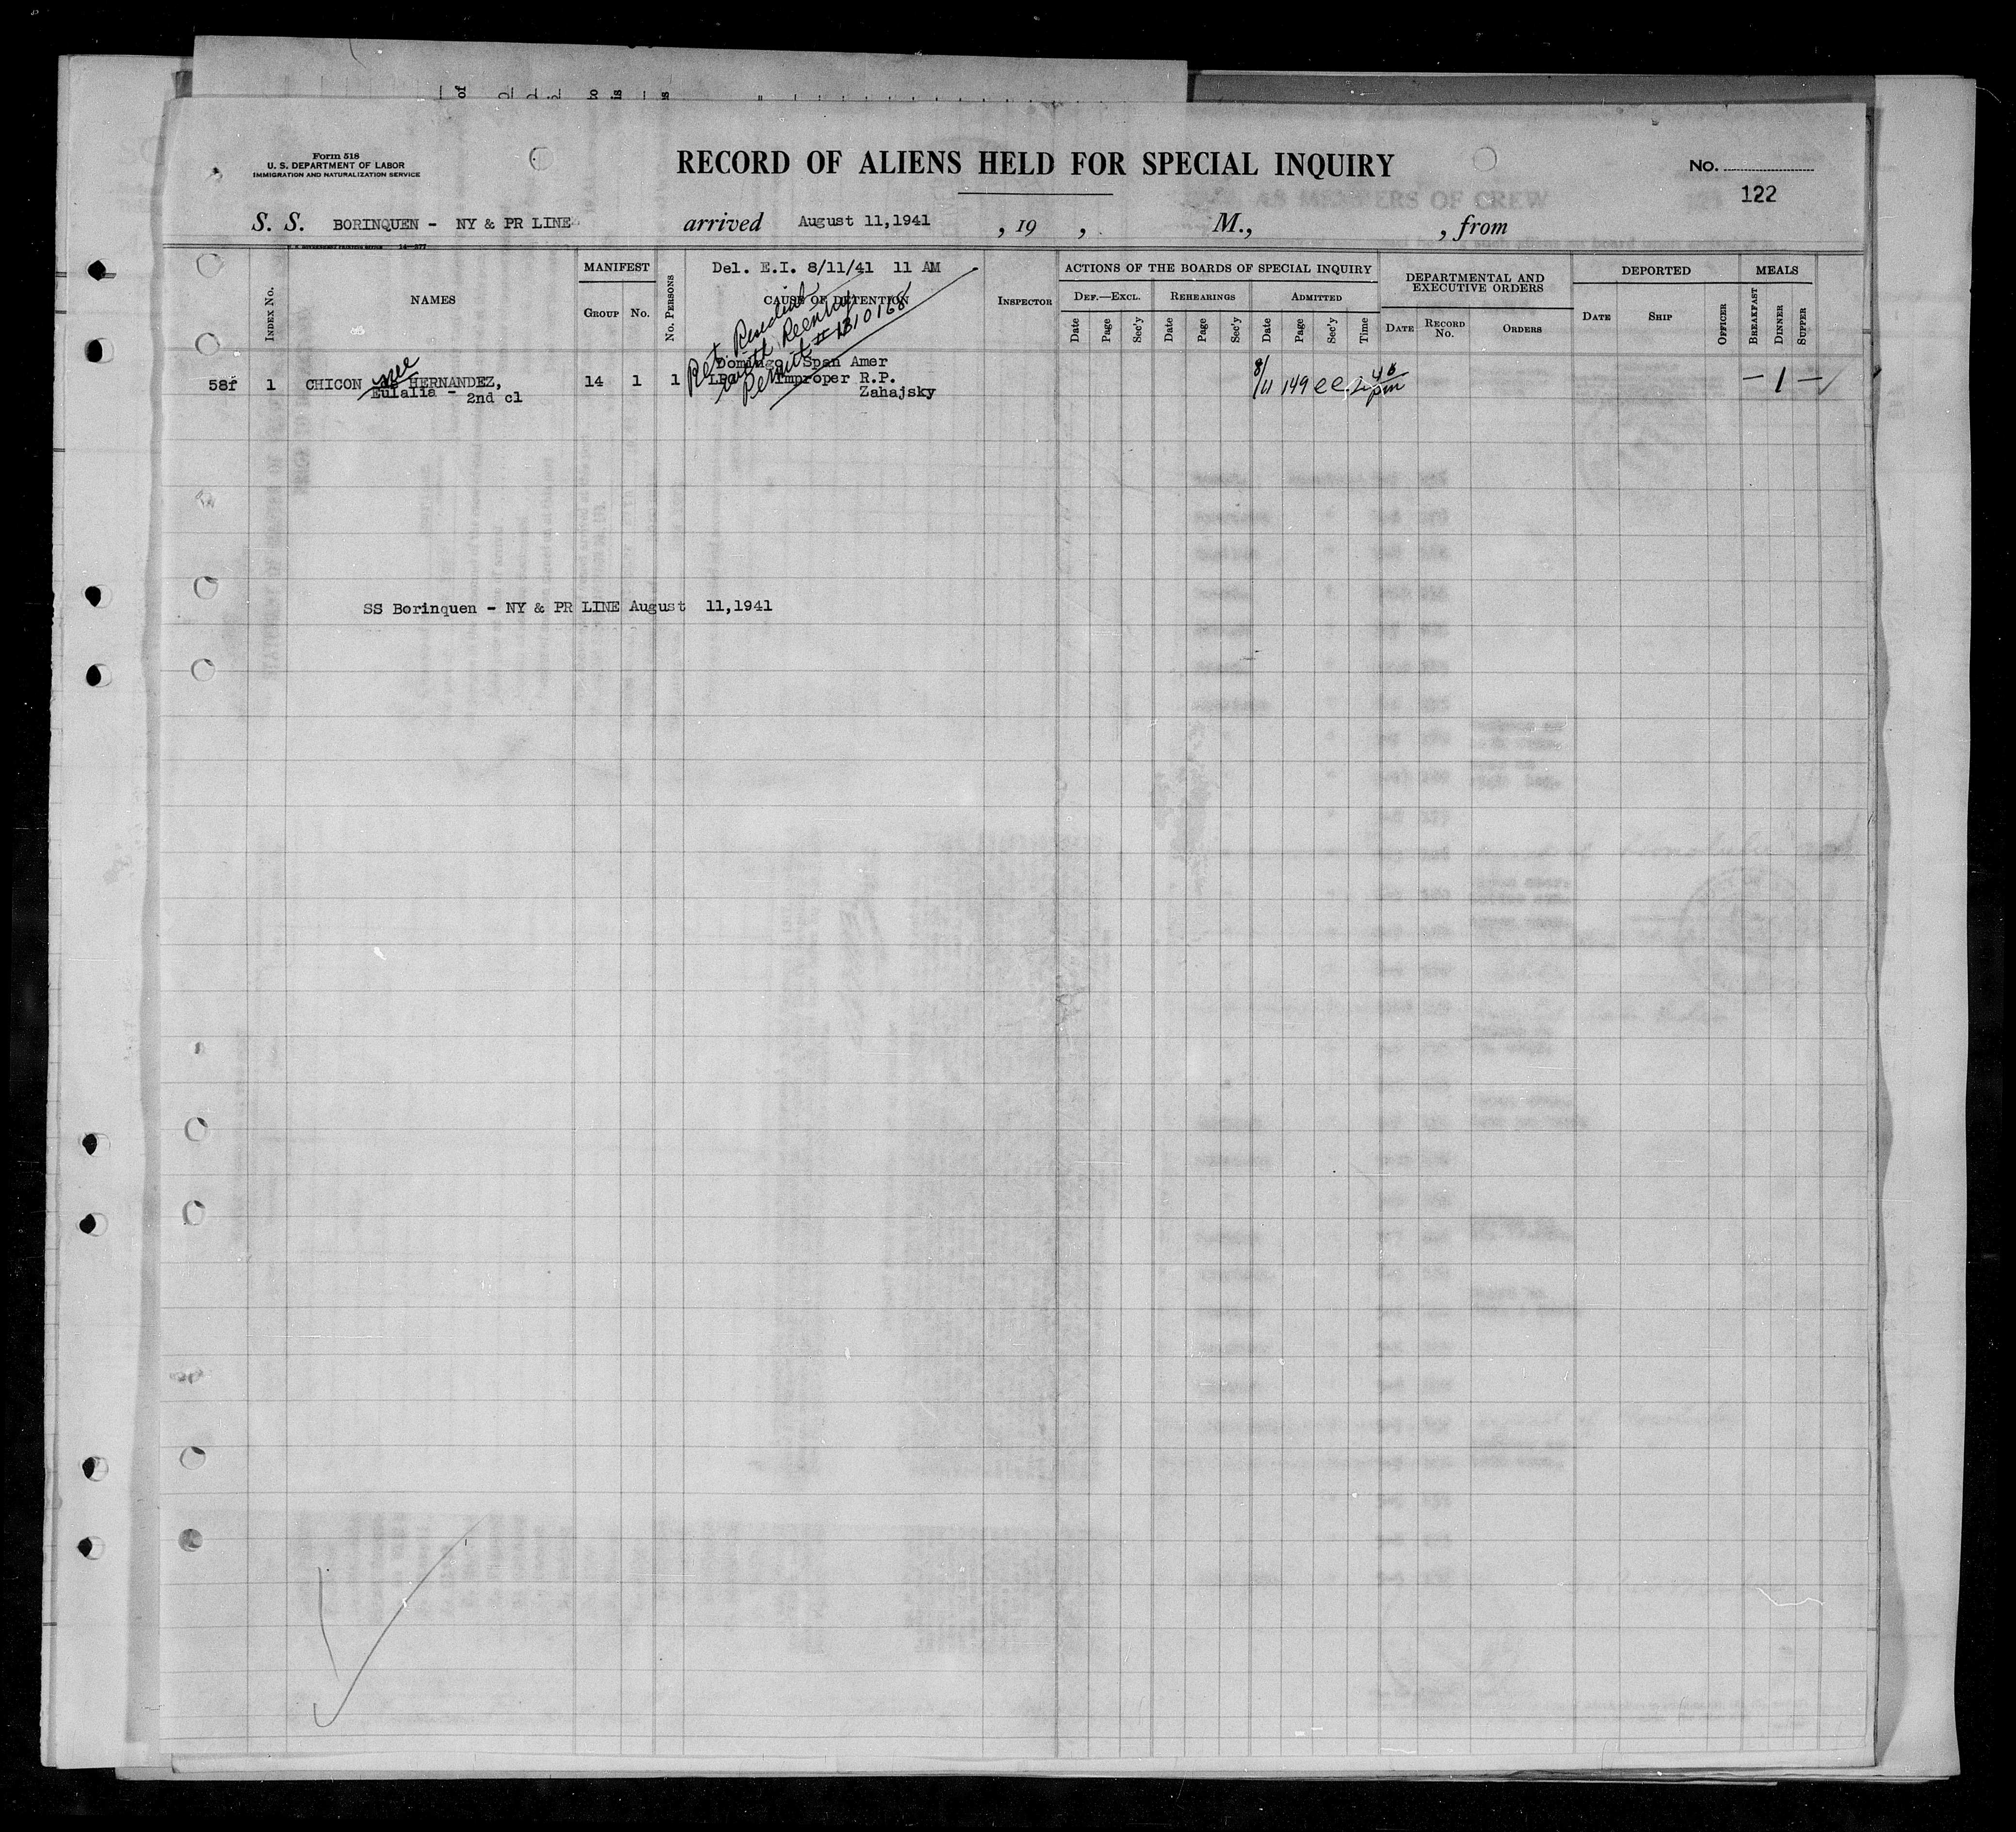 Form 518
U. S. DEPARTMENT OF LABOR
IMMIGRATION AND NATURALIZATION SERVICE
RECORD OF ALIENS HELD FOR SPECIAL INQUIRY
No.
122
S. S. BORINQUEN - NY & PR LINE arrived August 11,1941 , 19 , M., , from
INDEX No.
NAMES
MANIFEST
GROUP No.
No. PERSONS
Del. E.I. 8/11/41 11 AM
CAUSE OF DETENTION
INSPECTOR
ACTIONS OF THE BOARDS OF SPECIAL INQUIRY
DEF.—EXCL. REHEARINGS ADMITTED
Date Page Sec'y Date Page Sec'y Date Page Sec'y Time
DEPARTMENTAL AND
EXECUTIVE ORDERS
DATE RECORD No. ORDERS
DEPORTED
DATE SHIP OFFICER
MEALS
BREAKFAST DINNER SUPPER
Ret. Resident
with Reentry
Permit # 1310168
Domingo Span Amer
58f 1 CHICON nee HERNANDEZ, 14 1 1 LPC Improper R.P. 8/11 149
Eulalia - 2nd cl Zahajsky
— 1 —
SS Borinquen - NY & PR LINE August 11,1941